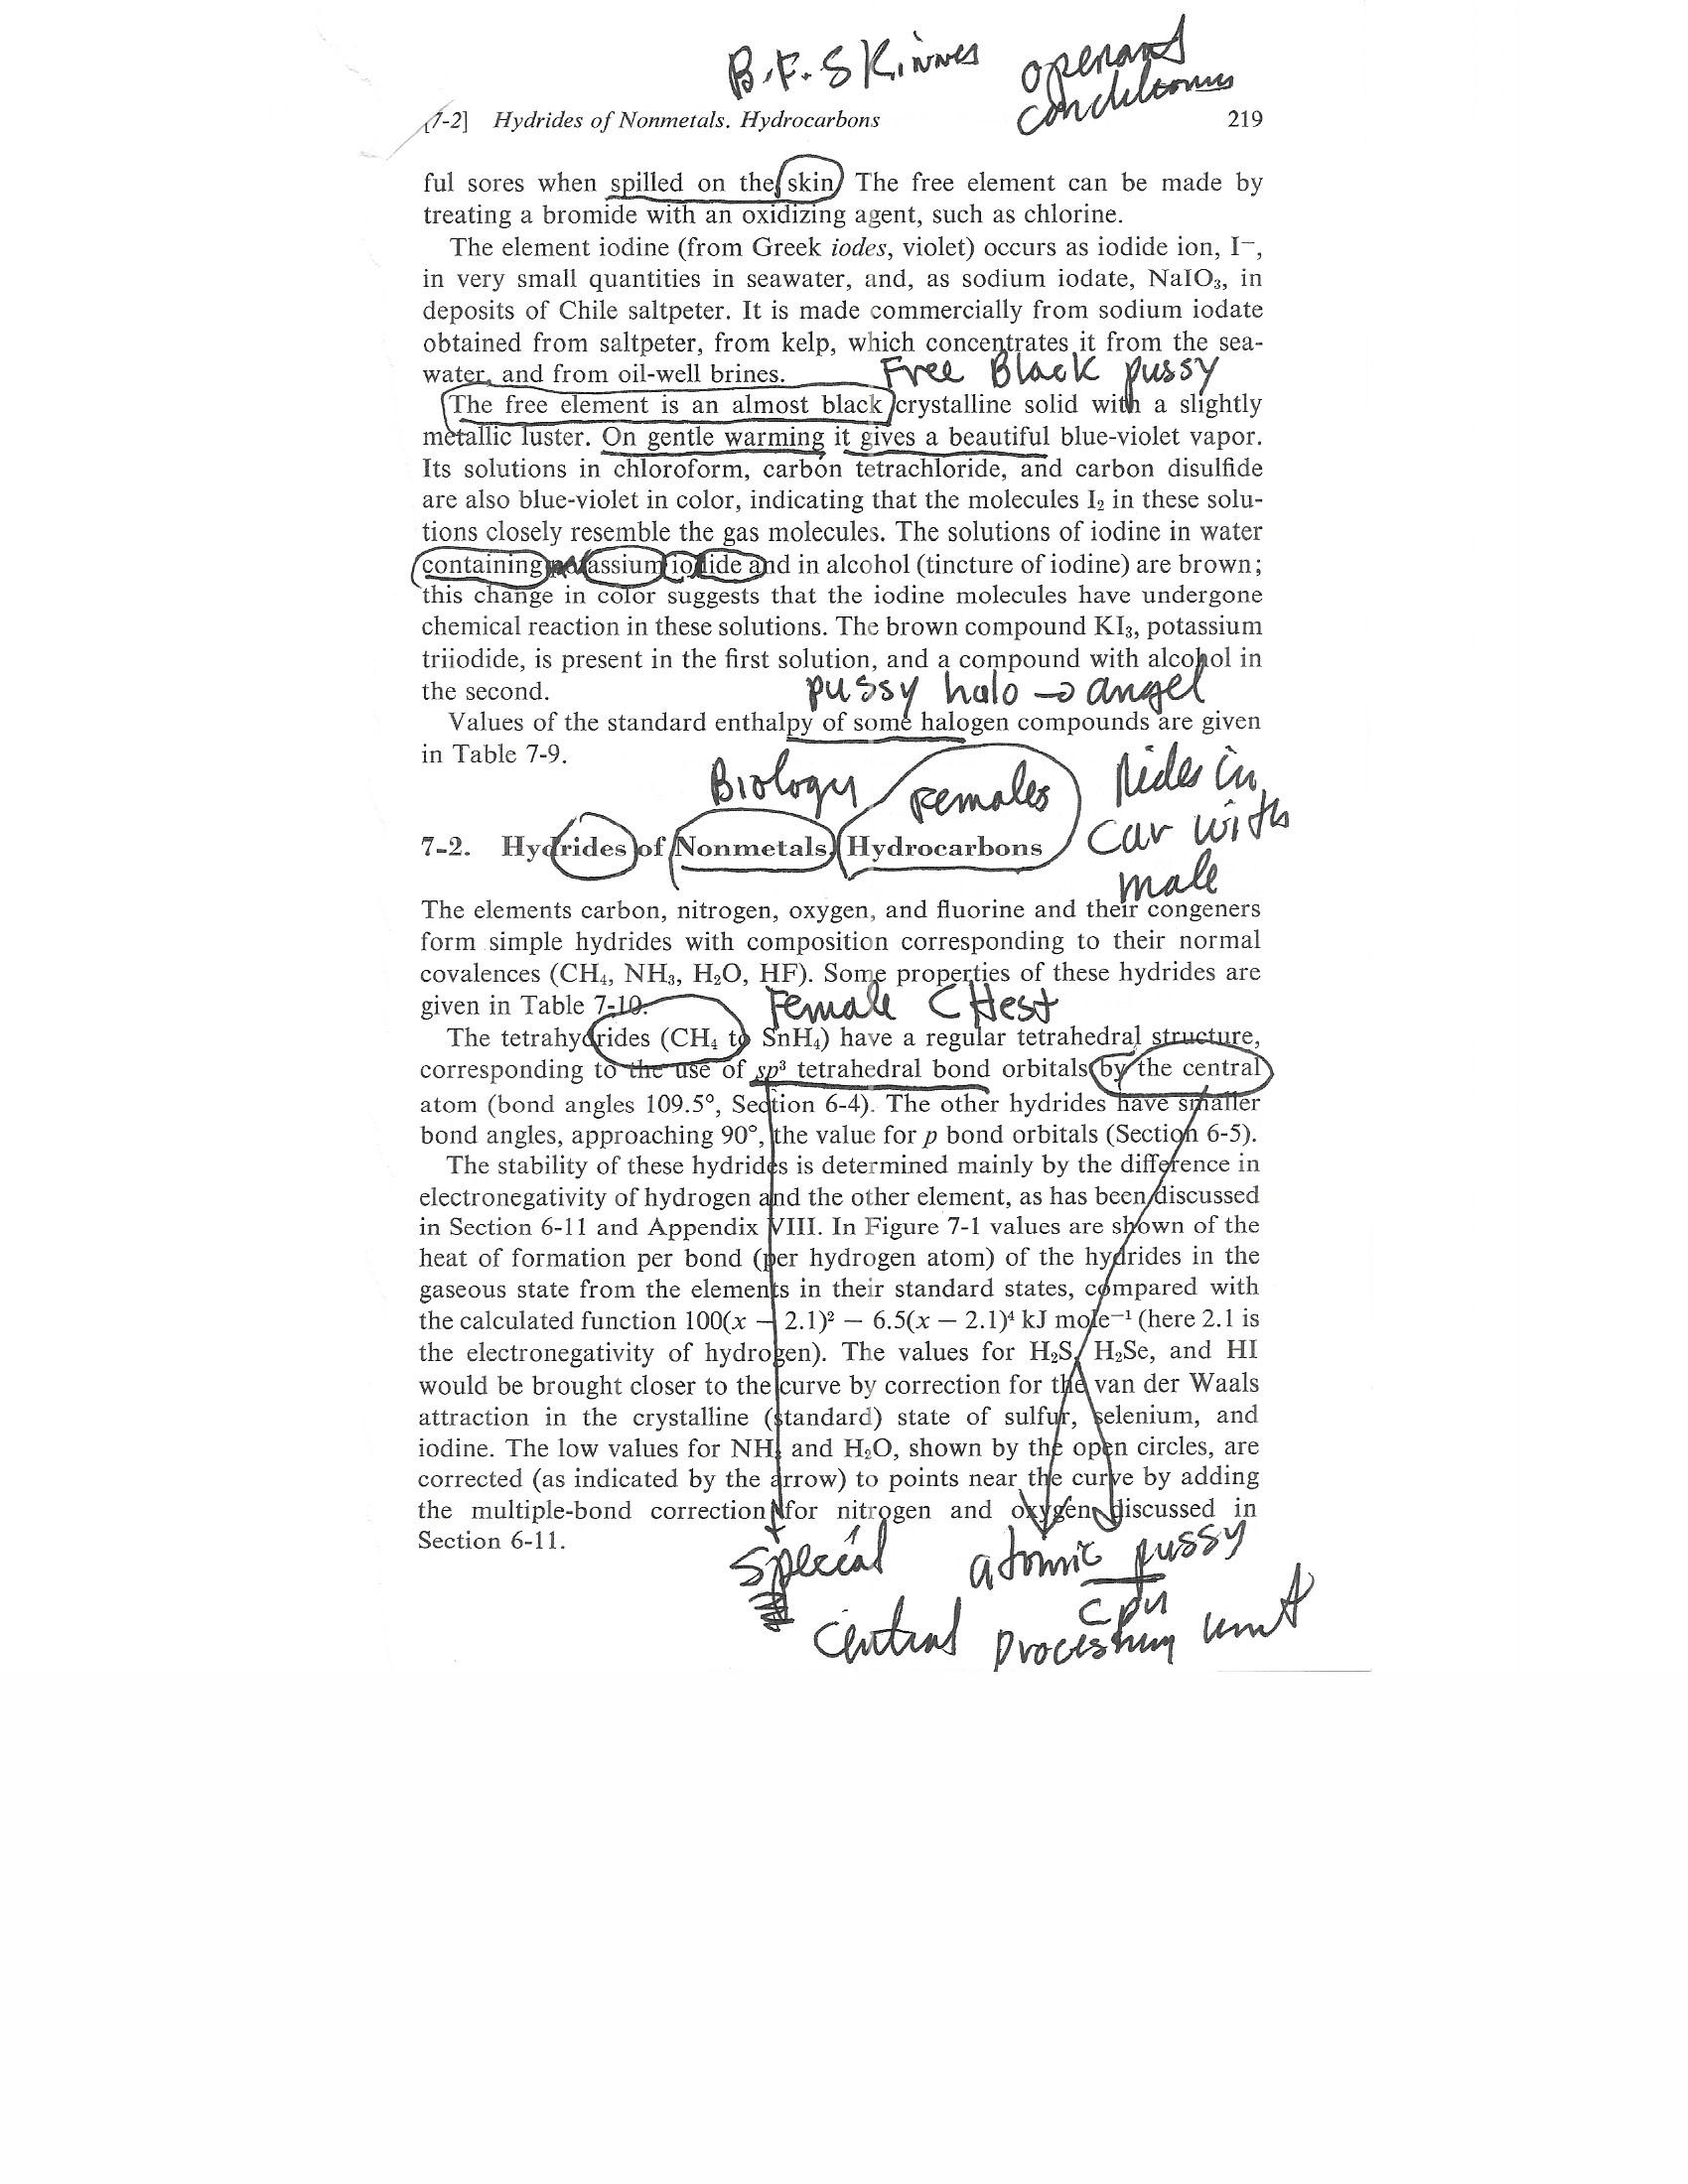 B.F. Skinner operant
conditioning
[7-2] Hydrides of Nonmetals. Hydrocarbons 219
ful sores when spilled on the skin. The free element can be made by
treating a bromide with an oxidizing agent, such as chlorine.
The element iodine (from Greek iodes, violet) occurs as iodide ion, I⁻,
in very small quantities in seawater, and, as sodium iodate, NaIO₃, in
deposits of Chile saltpeter. It is made commercially from sodium iodate
obtained from saltpeter, from kelp, which concentrates it from the sea-
water, and from oil-well brines.
Free Black pussy
The free element is an almost black crystalline solid with a slightly
metallic luster. On gentle warming it gives a beautiful blue-violet vapor.
Its solutions in chloroform, carbon tetrachloride, and carbon disulfide
are also blue-violet in color, indicating that the molecules I₂ in these solu-
tions closely resemble the gas molecules. The solutions of iodine in water
containing potassium iodide and in alcohol (tincture of iodine) are brown;
this change in color suggests that the iodine molecules have undergone
chemical reaction in these solutions. The brown compound KI₃, potassium
triiodide, is present in the first solution, and a compound with alcohol in
the second.
pussy halo → angel
Values of the standard enthalpy of some halogen compounds are given
in Table 7-9.
Biology Females Rides in
car with
male
7-2. Hydrides of Nonmetals. Hydrocarbons
The elements carbon, nitrogen, oxygen, and fluorine and their congeners
form simple hydrides with composition corresponding to their normal
covalences (CH₄, NH₃, H₂O, HF). Some properties of these hydrides are
given in Table 7-10.
Female CHest
The tetrahydrides (CH₄ to SnH₄) have a regular tetrahedral structure,
corresponding to the use of sp³ tetrahedral bond orbitals by the central
atom (bond angles 109.5°, Section 6-4). The other hydrides have smaller
bond angles, approaching 90°, the value for p bond orbitals (Section 6-5).
The stability of these hydrides is determined mainly by the difference in
electronegativity of hydrogen and the other element, as has been discussed
in Section 6-11 and Appendix VIII. In Figure 7-1 values are shown of the
heat of formation per bond (per hydrogen atom) of the hydrides in the
gaseous state from the elements in their standard states, compared with
the calculated function 100(x − 2.1)² − 6.5(x − 2.1)⁴ kJ mole⁻¹ (here 2.1 is
the electronegativity of hydrogen). The values for H₂S, H₂Se, and HI
would be brought closer to the curve by correction for the van der Waals
attraction in the crystalline (standard) state of sulfur, selenium, and
iodine. The low values for NH₃ and H₂O, shown by the open circles, are
corrected (as indicated by the arrow) to points near the curve by adding
the multiple-bond correction for nitrogen and oxygen discussed in
Section 6-11.
Special atomic pussy
cpu
Central processing unit